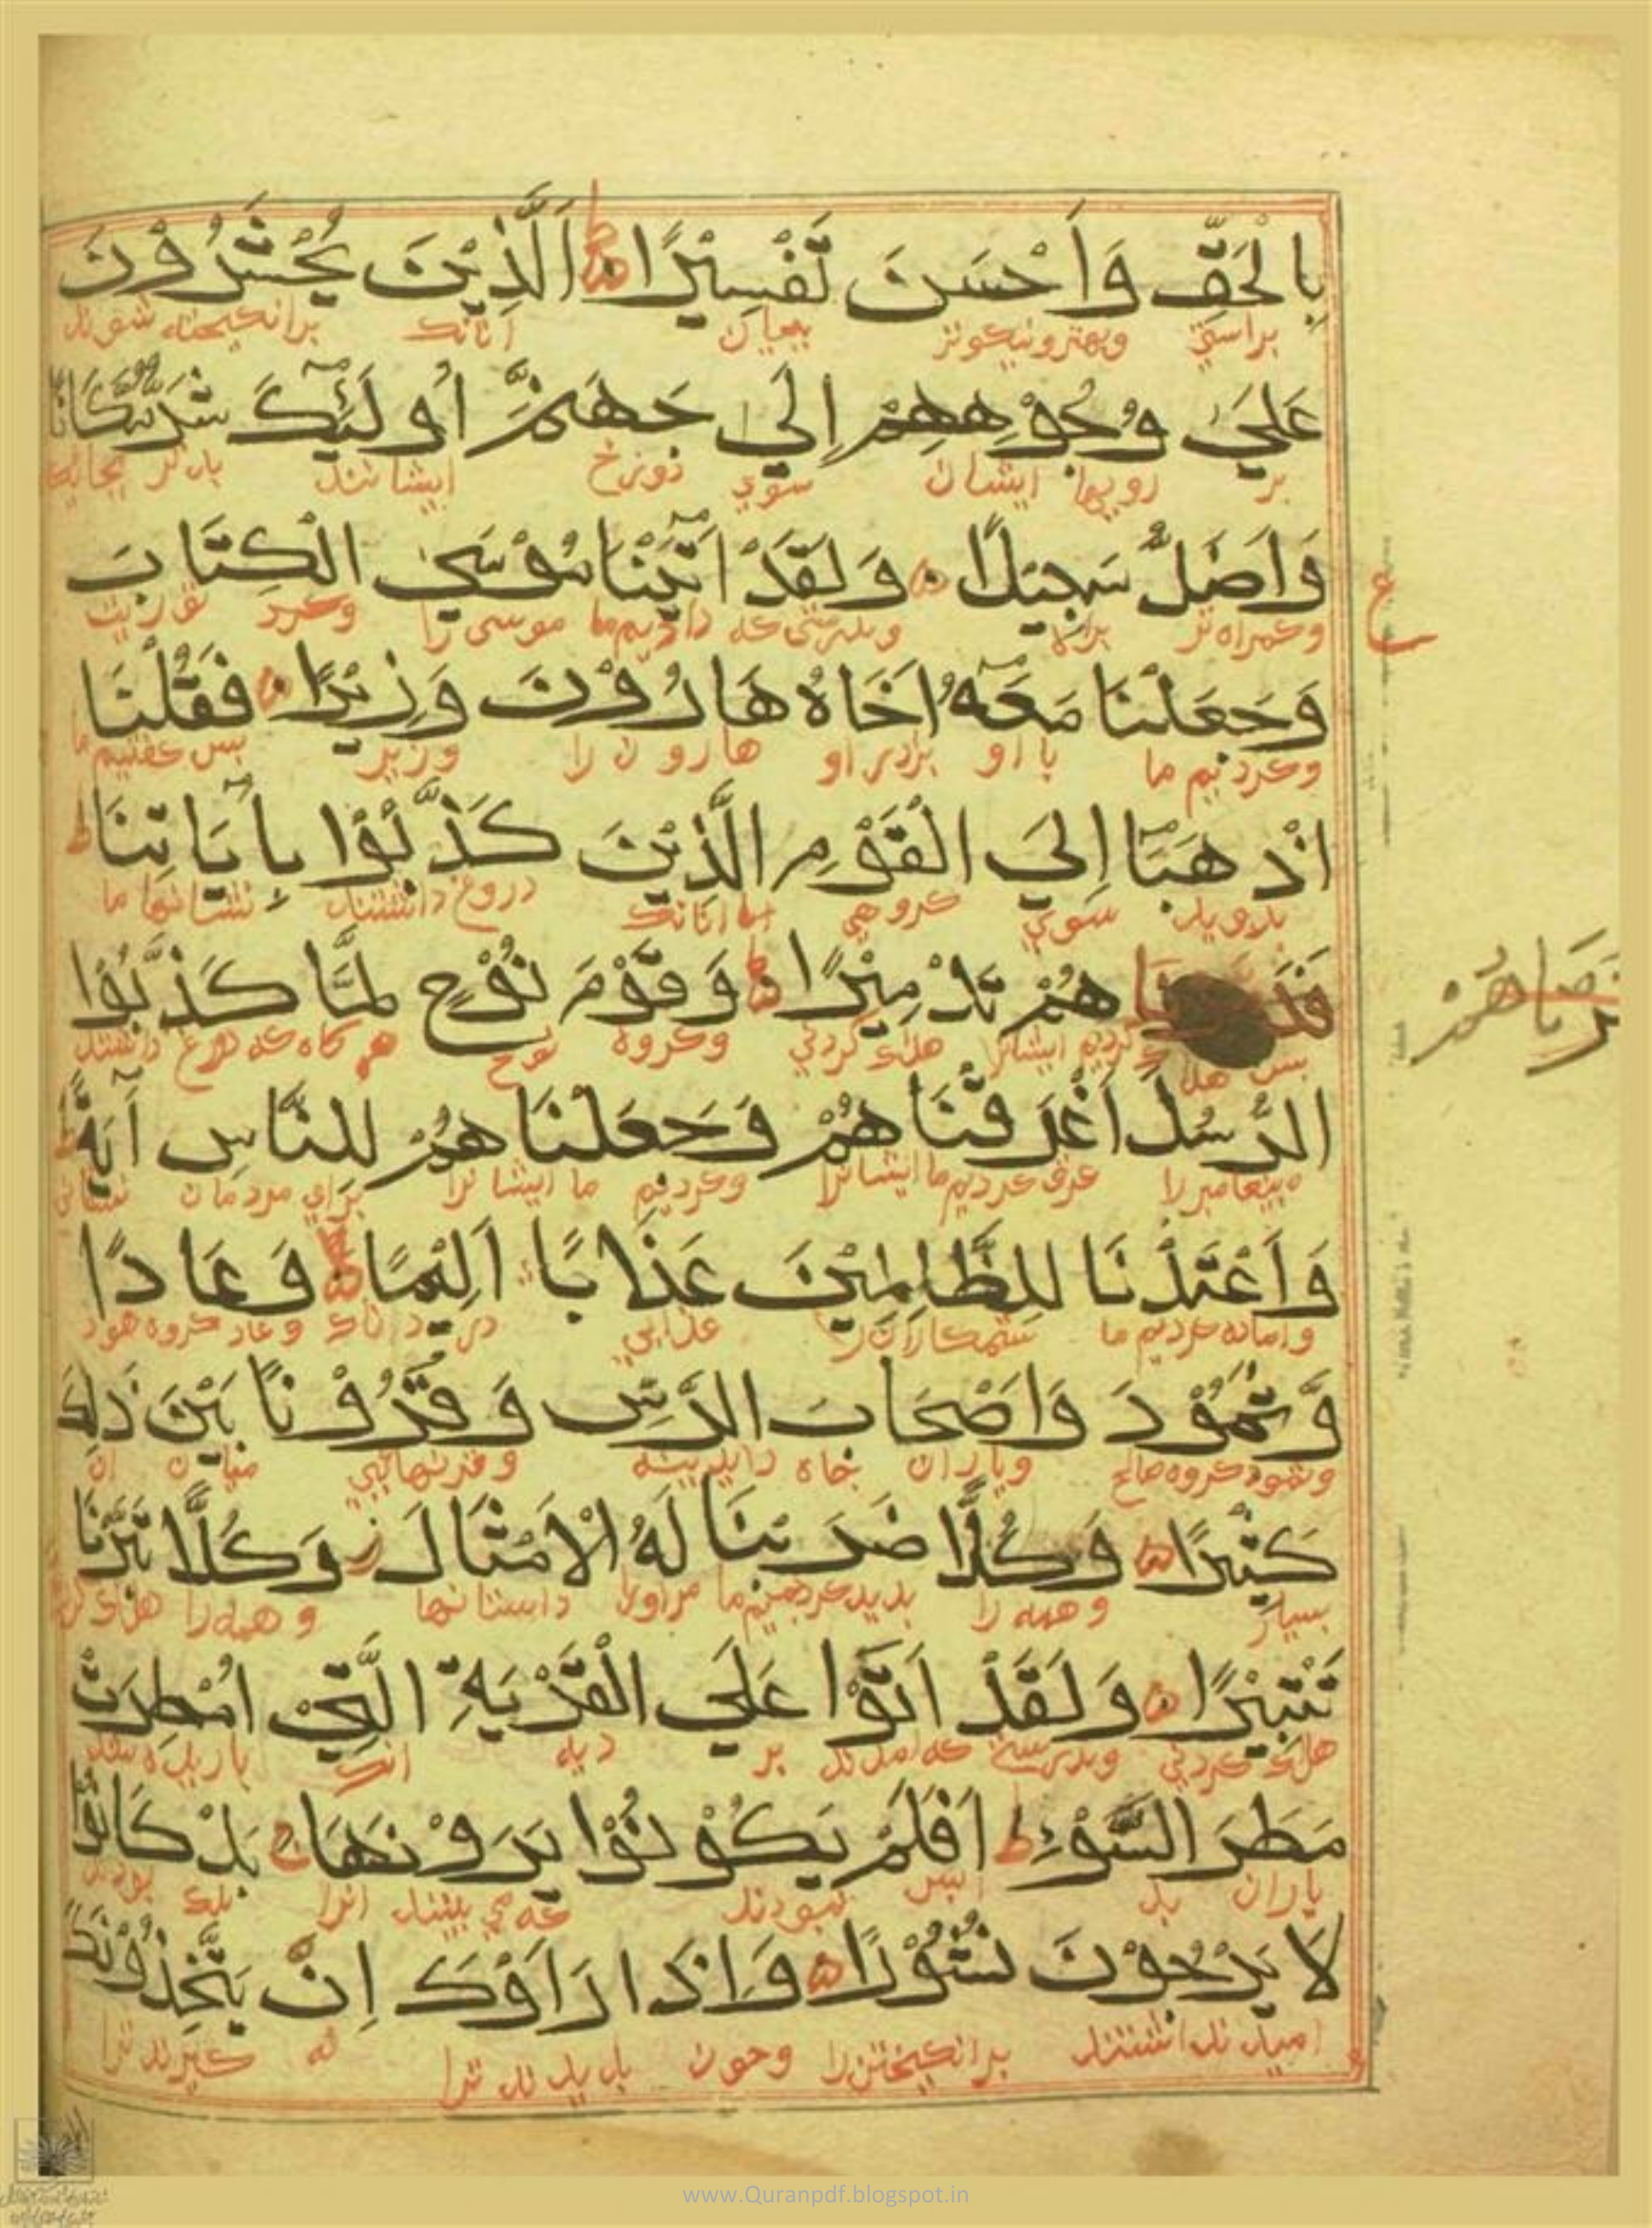 بِالْحَقِّ وَاَحْسَنَ تَفْسِيْرًا اَلَّذِيْنَ يُحْشَرُوْنَ
براستي وبهتر ونیکوتر ببیان آنانک برانکیخته شوند
عَلَيٰ وُجُوْهِهِمْ اِلَي جَهَنَّمَ اُولَئِكَ شَرٌّ مَكَانًا
بر رویها ایشان سوي دوزخ ایشانند بدتر بجایکه
وَاَضَلُّ سَبِيْلًا وَلَقَدْ اٰتَيْنَا مُوْسَيٰ الْكِتَابَ
وکمراه تر براه وبدرستی که دادیم ما موسی را توریت
وَجَعَلْنَا مَعَهُ اَخَاهُ هَارُوْنَ وَزِيْرًا فَقُلْنَا
وکردیم ما با او برادر او هارون را وزیر پس کفتیم ما
اذْهَبَآ اِلَيَ الْقَوْمِ الَّذِيْنَ كَذَّبُوْا بِاٰيَاتِنَا ط
بروید سوي کروهي آنانک دروغ داشتند نشانها ما
فَدَ نَاهُمْ تَدْمِيْرًا وَقَوْمَ نُوْحٍ لَمَّا كَذَّبُوْا
پس هلاک کردیم ایشانرا هلاک کردني وکروه نوح هر کاه که دروغ داشتند
الرُّسُلَ اَغْرَقْنَاهُمْ وَجَعَلْنَاهُمْ لِلنَّاسِ آيَةً ط
پیغامبر را غرق کردیم ما ایشانرا وکردیم ما ایشانرا براي مردمان نشاني
وَاَعْتَدْنَا لِلظَّالِمِيْنَ عَذَابًا اَلِيْمًا وَعَادًا
واماده کردیم ما ستمکارانرا عذابي دردناک وعاد کروه هود
وَّثَمُوْدَ وَاَصْحَابَ الرَّسِّ وَقُرُوْنًا بَيْنَ ذٰلِكَ
وثمود کروه صالح ویاران چاه وقرنهایي میان ان
كَثِيْرًا وَكُلًّا ضَرَبْنَا لَهُ الْاَمْثَالَ ز وَكُلًّا تَبَّرْنَا
بسیار وهمه را پدید کردیم ما مراورا داستانها وهمه را هلاک کردیم
تَتْبِيْرًا وَلَقَدْ اَتَوْا عَلَي الْقَرْيَةِ الَّتِيْ اُمْطِرَتْ
هلاک کردني وبدرستي که امدند بر دیه انک باریده شد
مَطَرَ السَّوْءِ ط اَفَلَمْ يَكُوْنُوْا يَرَوْنَهَا بَلْ كَانُوْا
باران بد ایس نبودند که مي بینند انرا بلک بودند
لَا يَرْجُوْنَ نُشُوْرًا وَاِذَا رَاَوْكَ اِنْ يَتَّخِذُوْنَكَ
امید نداشتند برانکیختن را وچون بدیدند ترا نه کیرند ترا
ع
www.Quranpdf.blogspot.in